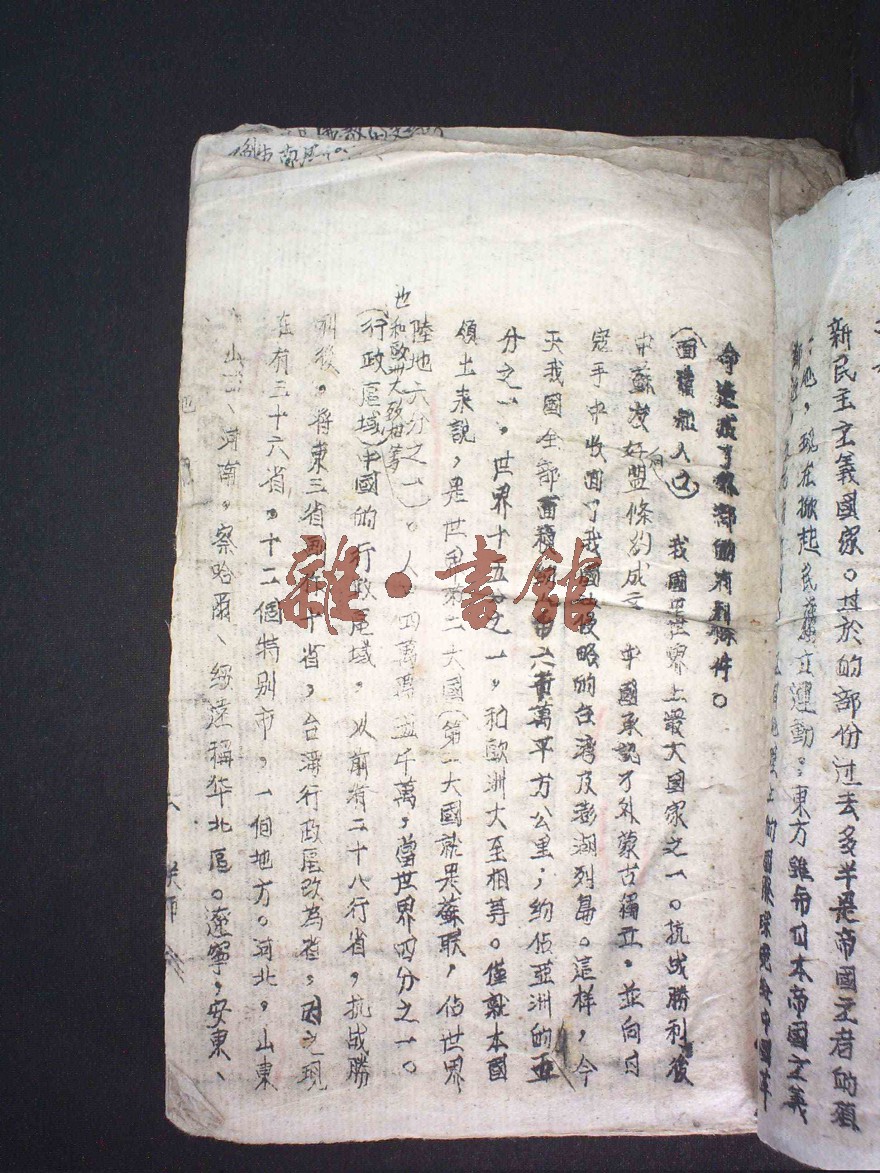 新民主主義國家。其於的部份过去多半是帝國主者的殖
地,現在掀起民族独立運動。東方虽布日本帝國主義
上的國際環境給中國革
命造成了外部的有利條件。
(面積和人口)我國是世界上最大國家之一。抗战勝利後
中蘇友好盟條約成立,中國承認了外蒙古獨立。並向日
寇手中收回了我國被侵略的台湾及澎湖列島。這样,今
天我國全部面積 六百萬平方公里;约佔亞洲的
分之一,世界十五分之一,和歐洲大至相等。僅就本國
領土来說,是世界第二大國(第一大國就是蘇联,佔世界
陸地六分之一)。人口四萬萬五千萬,當世界四分之一。
也和歐洲大致相等
(行政區域)中國的行政區域,以前有二十八行省,抗战勝
利後,將東三省劃作十省,台湾行政區改為省,因之現
在有三十六省,十二個特别市,一個地方。河北,山東
山西、河南,察哈爾、綏遠稱华北區。遼寧,安東、
雜·書館